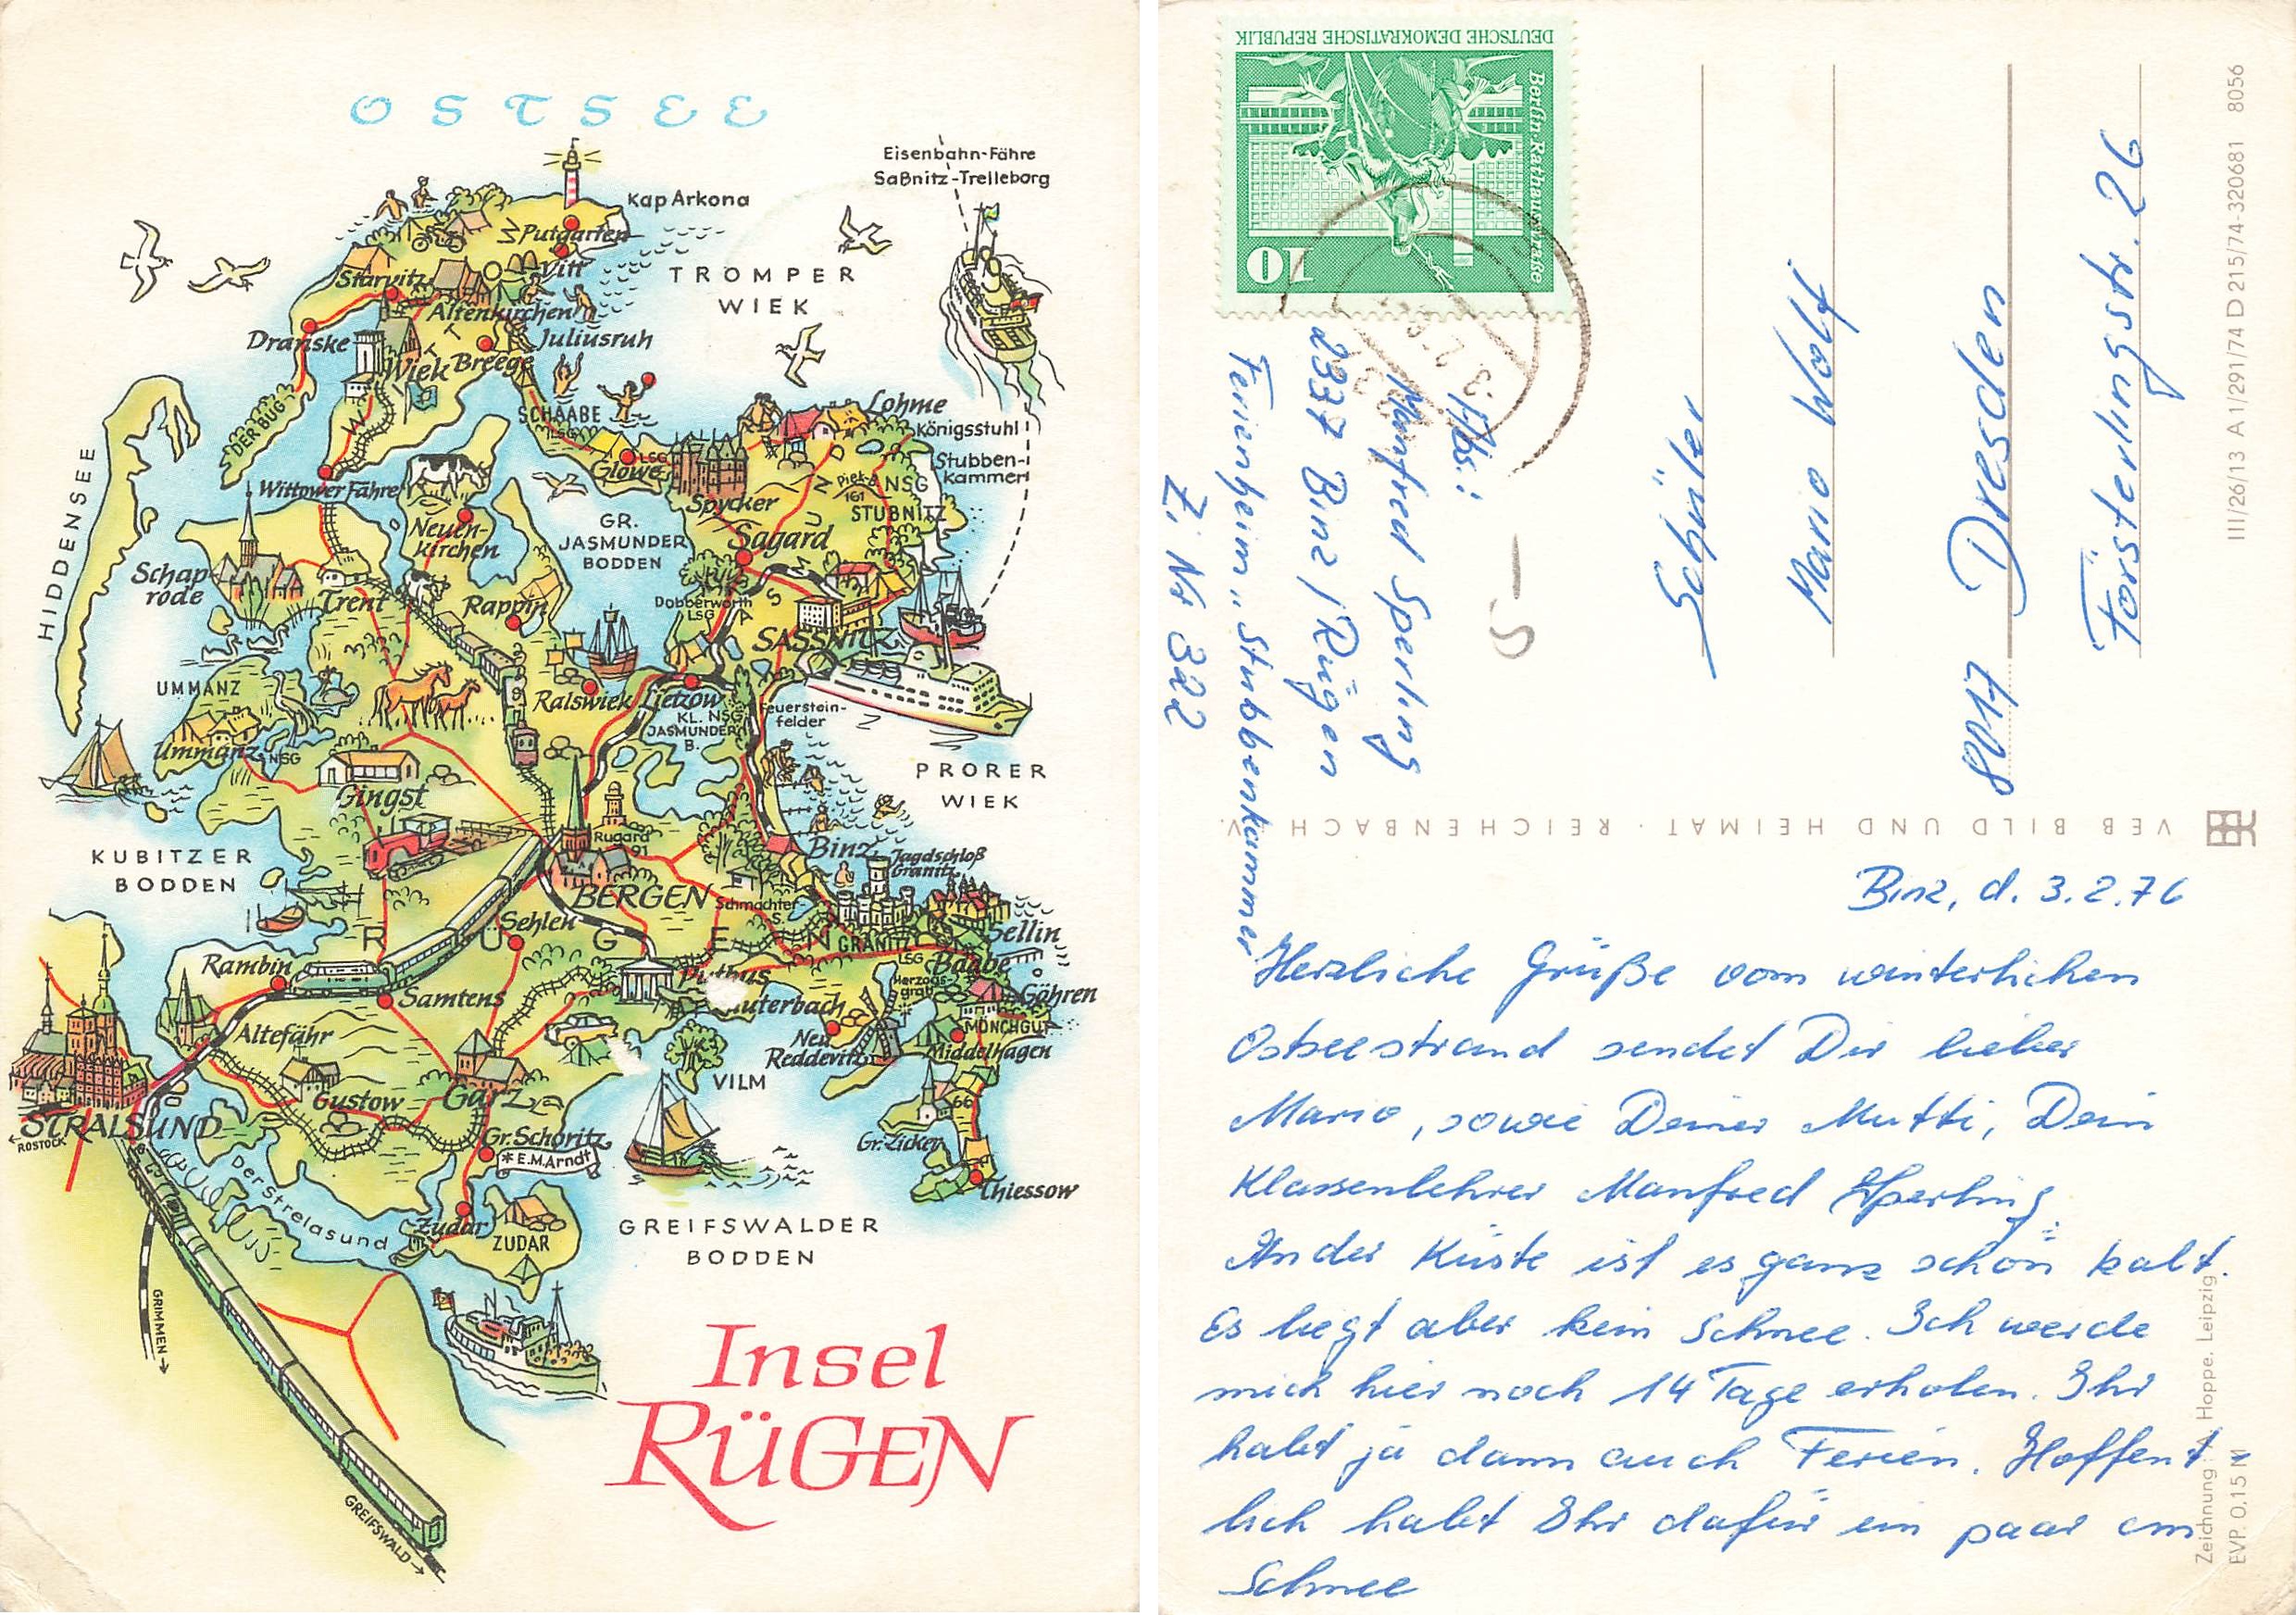 OSTSEE
Eisenbahn-Fähre
Saßnitz-Trelleborg
Kap Arkona
Putgarten
Vitt
TROMPER
WIEK
Starvitz
Altenkirchen
Juliusruh
Dranske
Wiek
Breege
DER BUG
SCHAABE
LSG
Lohme
Königsstuhl
Stubben-
kammer
HIDDENSEE
Glowe
LSG
Wittower Fähre
Spycker
Piek-B.
161
NSG
STUBNITZ
Neuen-
kirchen
GR.
JASMUNDER
BODDEN
Sagard
JASMUND
Schap-
rode
Trent
Rappin
Dobberworth
LSG
SASSNITZ
UMMANZ
Ralswiek
Lietzow
KL. NSG
JASMUNDER
B.
Feuerstein-
felder
Ummanz
NSG
PRORER
WIEK
Gingst
Rugard
91
KUBITZER
BODDEN
Binz
Jagdschloß
Granitz
BERGEN
Schmachter-
S.
Sehlen
RÜGEN
GRANITZ
LSG
Sellin
Baabe
Rambin
Putbus
Herzogs-
grab
Göhren
Samtens
Lauterbach
MÖNCHGUT
Altefähr
Neu
Reddevitz
Middelhagen
VILM
Gustow
Garz
66
STRALSUND
← ROSTOCK
Gr. Schoritz
* E.M.Arndt
Gr. Zicker
Thiessow
Der Strelasund
Zudar
ZUDAR
GREIFSWALDER
BODDEN
GRIMMEN →
GREIFSWALD →
Insel
RÜGEN
DEUTSCHE DEMOKRATISCHE REPUBLIK
Berlin Rathausstraße
10
Abs.:
Manfred Sperling
2337 Binz / Rügen
Ferienheim „Stubbenkammer
Z. Nr 322
Schüler
Mario Wolf
8017 Dresden
Försterlingstr. 26
III/26/13 A 1/291/74 D 215/74-320681 8056
VEB BILD UND HEIMAT · REICHENBACH V.
Binz, d. 3.2.76
Herzliche Grüße vom winterlichen
Ostseestrand sendet Dir lieber
Mario, sowie Deiner Mutti, Dein
Klassenlehrer Manfred Sperling.
An der Küste ist es ganz schön kalt.
Es liegt aber kein Schnee. Ich werde
mich hier noch 14 Tage erholen. Ihr
habt ja dann auch Ferien. Hoffent
lich habt Ihr dafür ein paar cm
Schnee
Zeichnung: A. Hoppe, Leipzig
EVP. 0,15 M